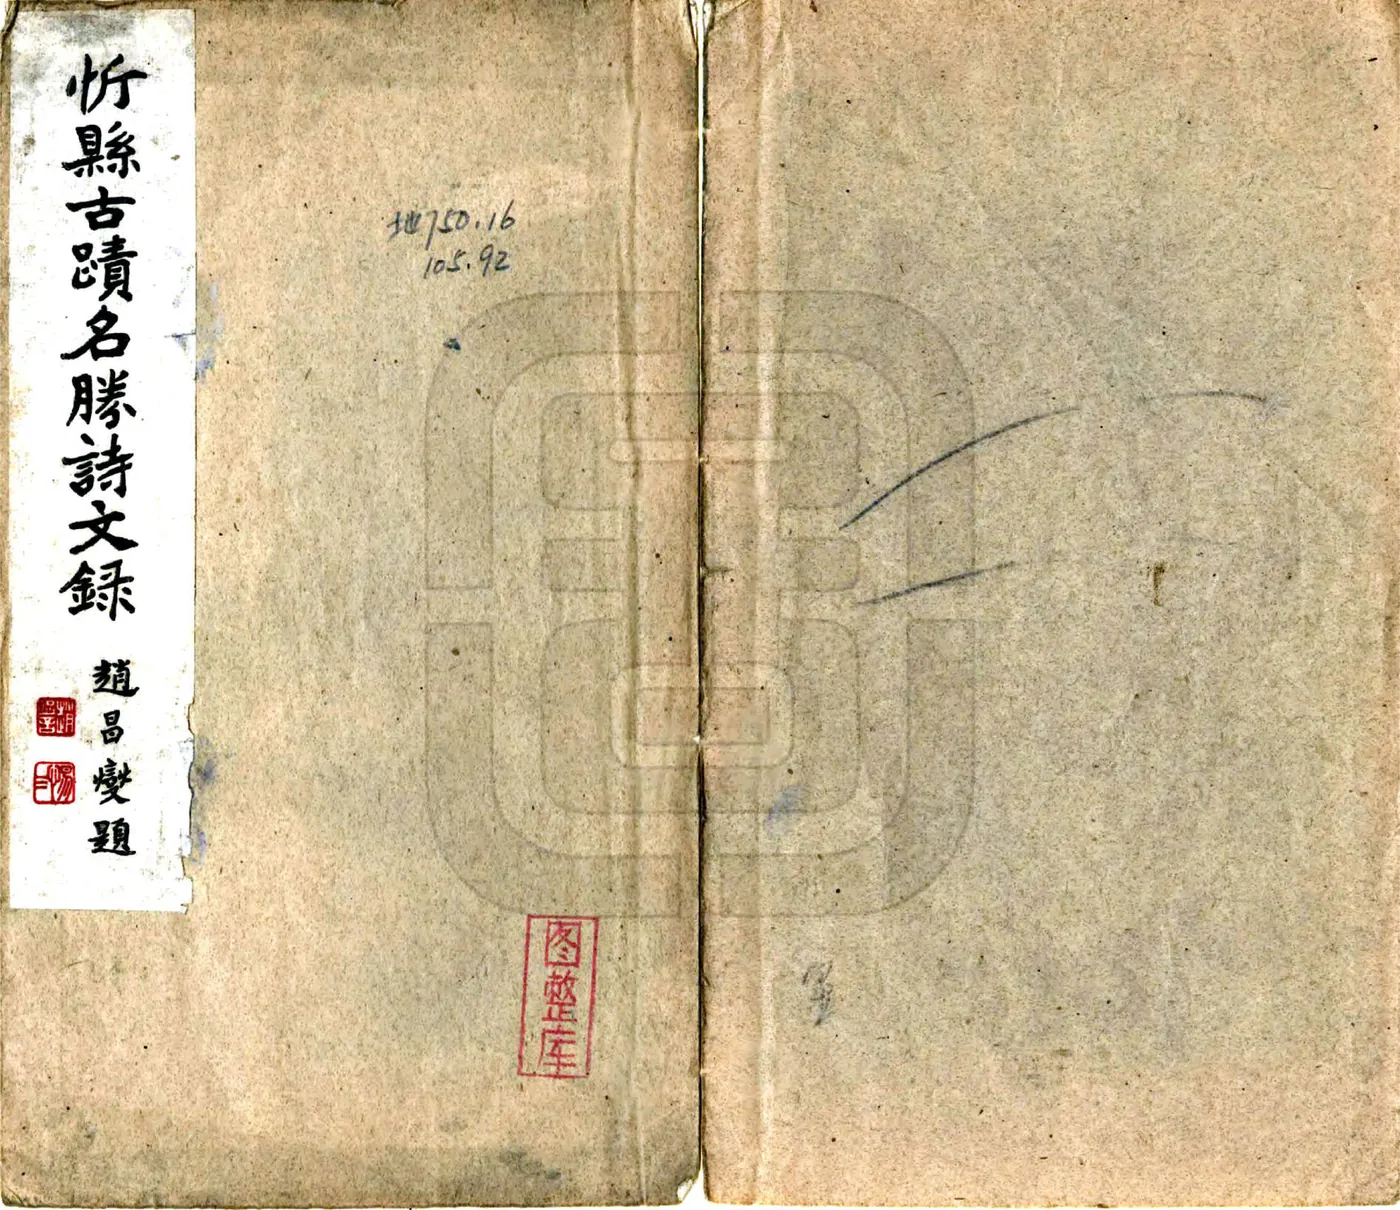 忻縣古蹟名勝詩文録
趙昌燮題
地750.16
105.92
图整库